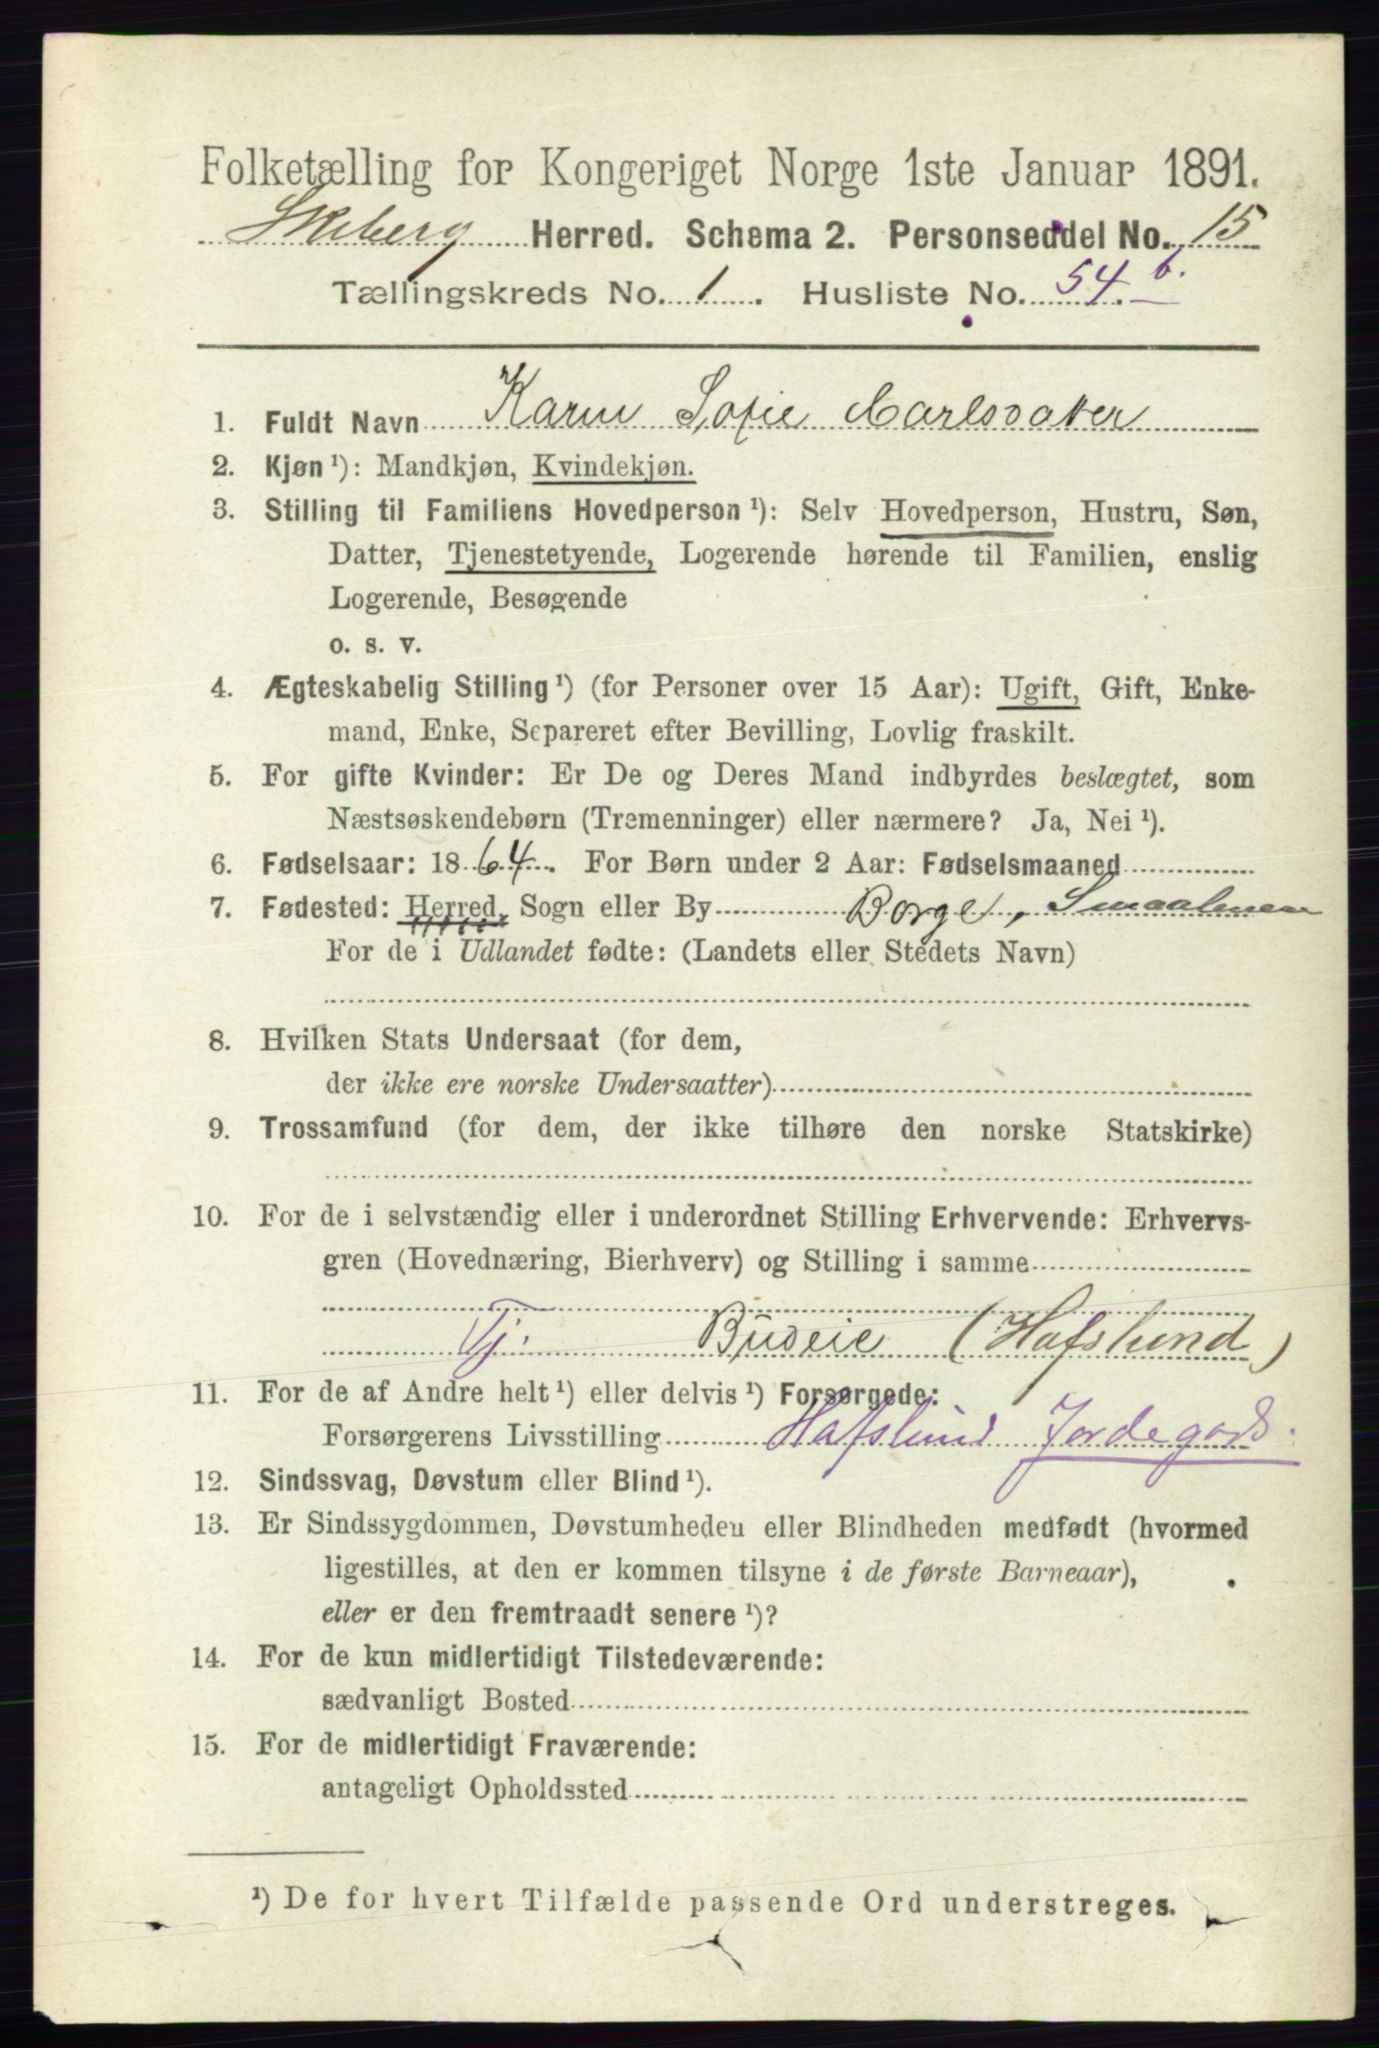 Folketælling for Kongeriget Norge 1ste Januar 1891.
Skeberg Herred. Schema 2. Personseddel No. 15
Tællingskreds No. 1. Husliste No. 54. b.
1. Fuldt Navn Karen Sofie Carlsdatter
2. Kjøn ¹): Mandkjøn, Kvindekjøn.
3. Stilling til Familiens Hovedperson ¹): Selv Hovedperson, Hustru, Søn,
Datter, Tjenestetyende, Logerende hørende til Familien, enslig
Logerende, Besøgende
o. s. v.
4. Ægteskabelig Stilling ¹) (for Personer over 15 Aar): Ugift, Gift, Enke-
mand, Enke, Separeret efter Bevilling, Lovlig fraskilt.
5. For gifte Kvinder: Er De og Deres Mand indbyrdes beslægtet, som
Næstsøskendebørn (Tremenninger) eller nærmere? Ja, Nei ¹).
6. Fødselsaar: 1864. For Børn under 2 Aar: Fødselsmaaned
7. Fødested: Herred, Sogn eller By Borge, Smaalenene
For de i Udlandet fødte: (Landets eller Stedets Navn)
8. Hvilken Stats Undersaat (for dem,
der ikke ere norske Undersaatter)
9. Trossamfund (for dem, der ikke tilhøre den norske Statskirke)
10. For de i selvstændig eller i underordnet Stilling Erhvervende: Erhvervs-
gren (Hovednæring, Bierhverv) og Stilling i samme
Tj. Budeie (Hafslund)
11. For de af Andre helt ¹) eller delvis ¹) Forsørgede:
Forsørgerens Livsstilling Hafslund Jordegods.
12. Sindssvag, Døvstum eller Blind ¹).
13. Er Sindssygdommen, Døvstumheden eller Blindheden medfødt (hvormed
ligestilles, at den er kommen tilsyne i de første Barneaar),
eller er den fremtraadt senere ¹)?
14. For de kun midlertidigt Tilstedeværende:
sædvanligt Bosted
15. For de midlertidigt Fraværende:
antageligt Opholdssted
¹) De for hvert Tilfælde passende Ord understreges.